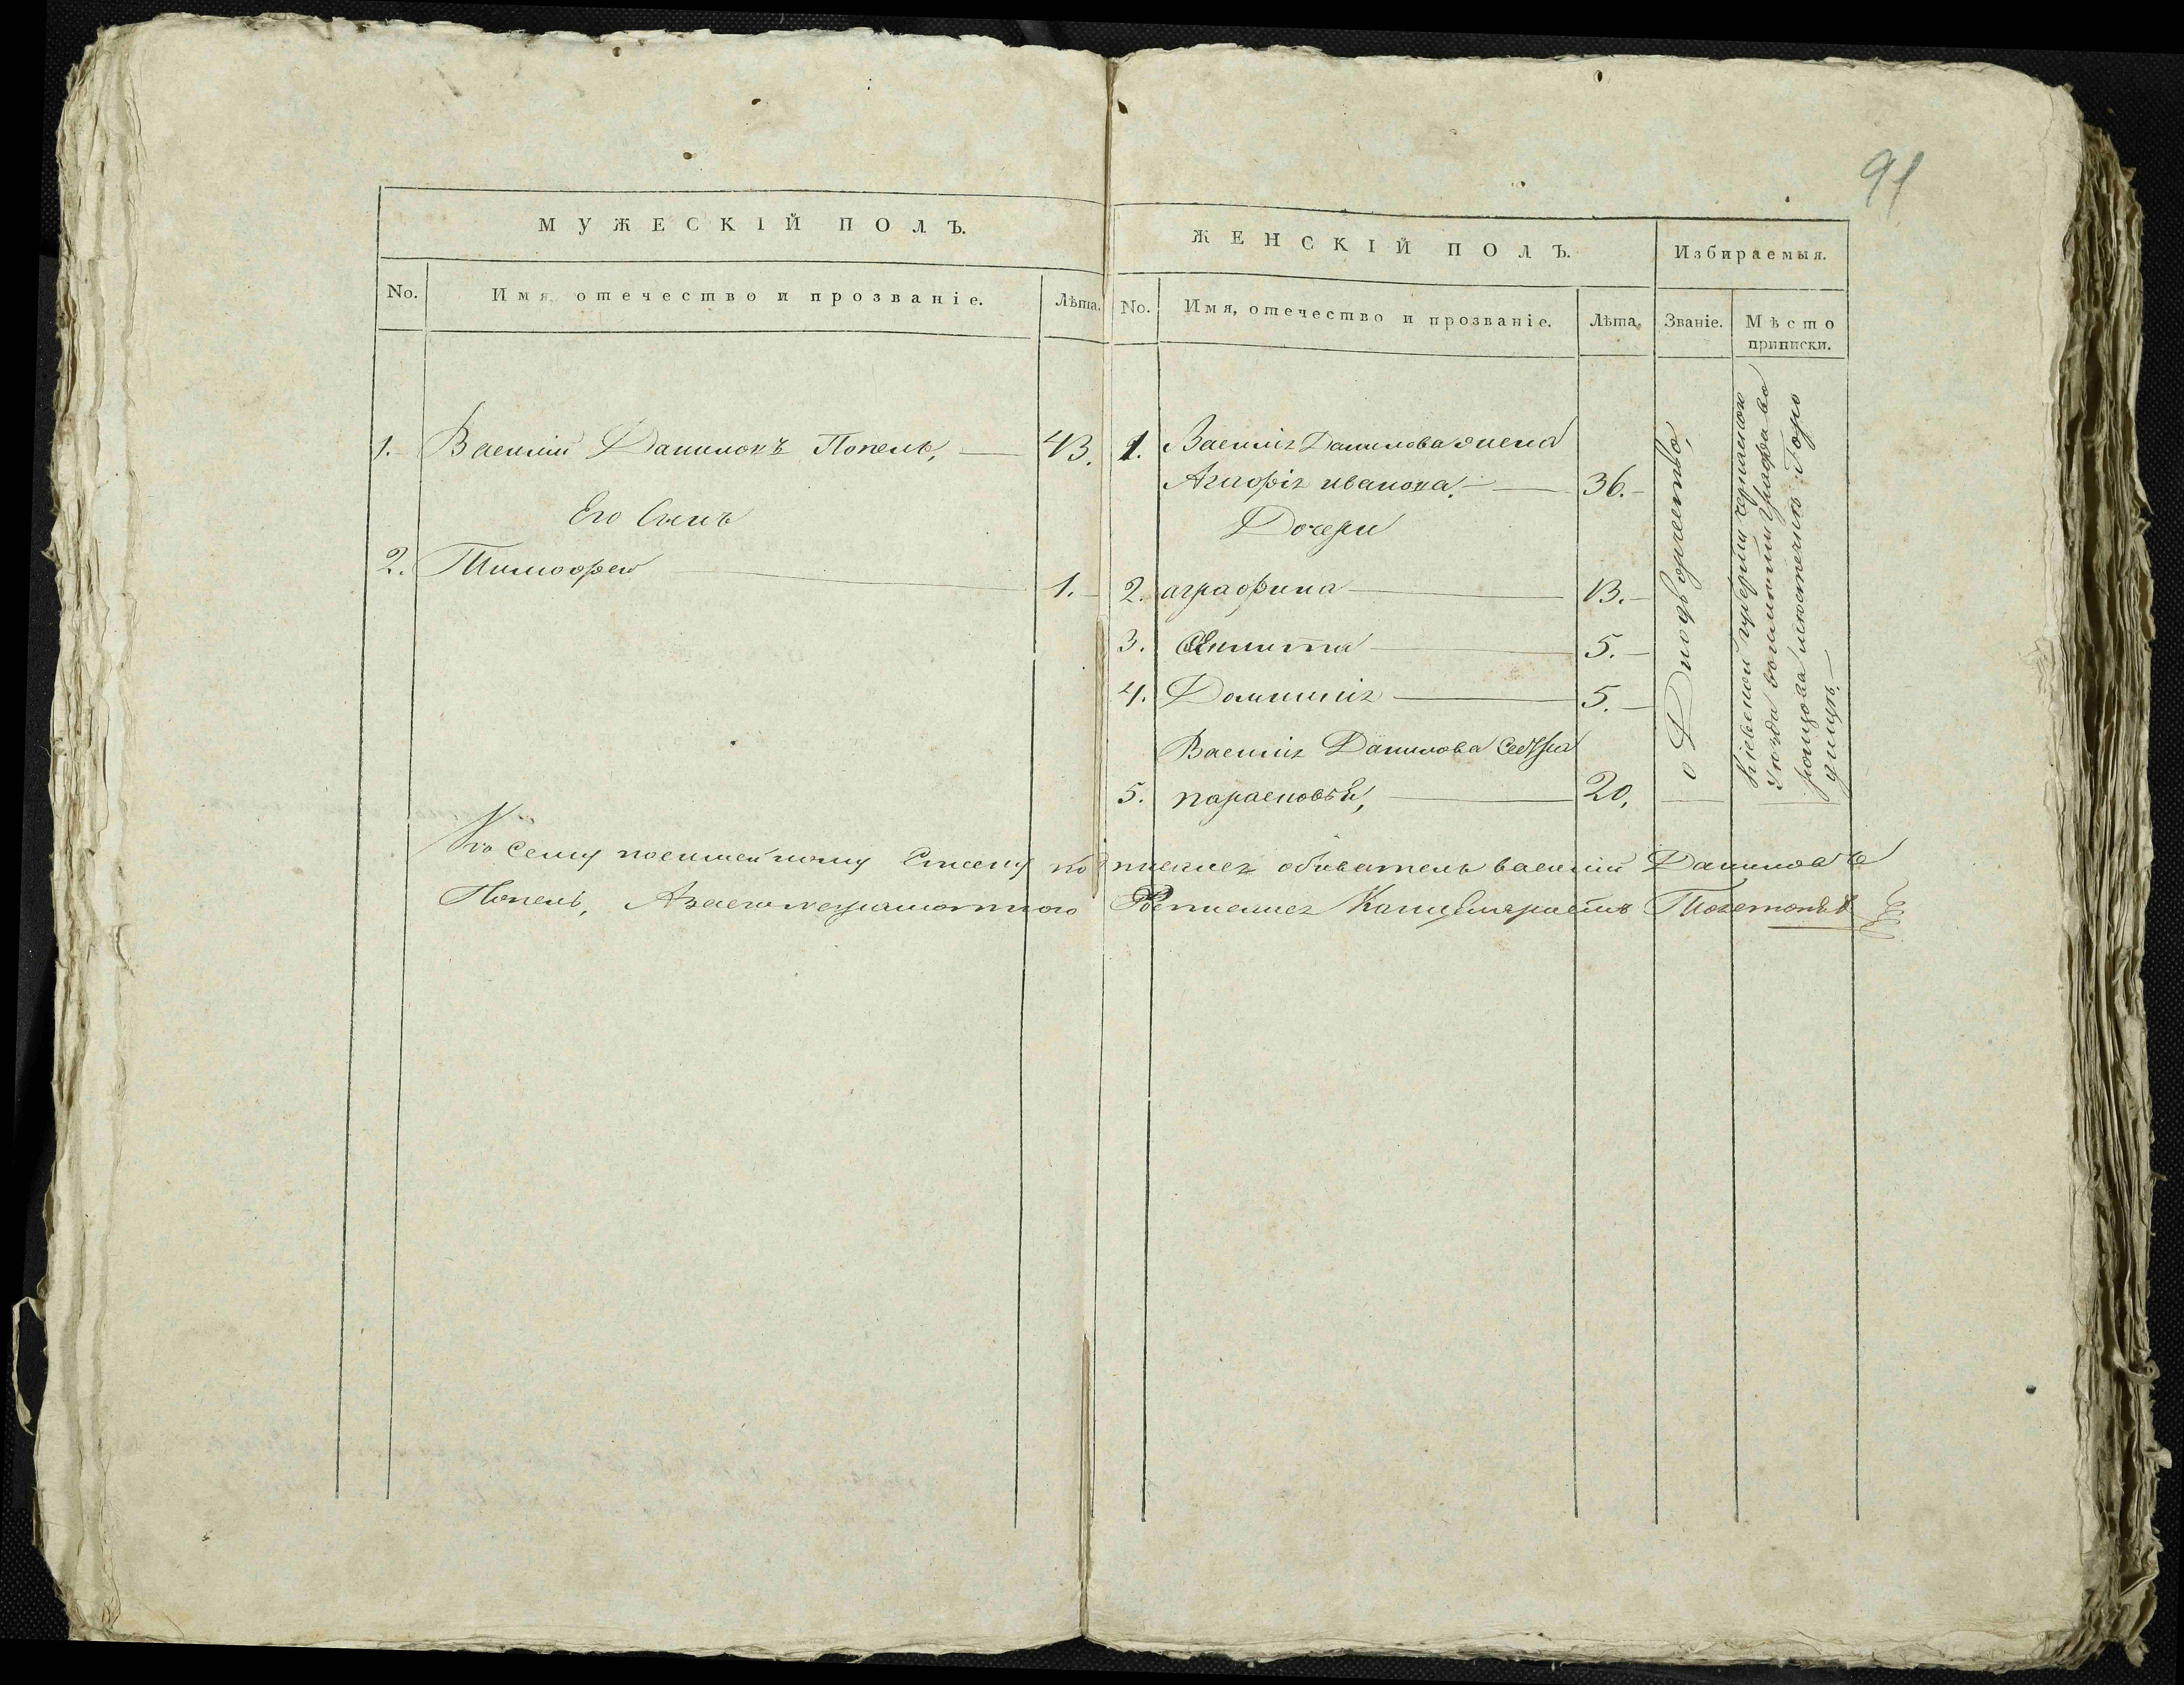 91
МУЖЕСКІЙ ПОЛЪ.
No. Имя, отечество и прозваніе. Лѣта.
1. Василій Даниловъ Попель, 43.
Его Сынъ
2. Тимофей 1.
ЖЕНСКІЙ ПОЛЪ. Избираемыя.
No. Имя, отечество и прозваніе. Лѣта. Званіе. Мѣсто
приписки.
1. Василія Данилова жена
Агафія иванова. 36.
Дочери
2. аграфина 13.
3. 5.
4. Домникія 5.
Василія Данилова Сестра
5. парасковья, 20.
Кіевской губерніи
уѣзда графа
Къ Сему посимейному Списку подписался обыватель василій Даниловъ
Попель, Азаего неграмотного Росписался Канцеляристъ